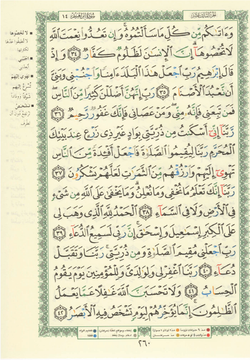 سورة إبراهيم ١٤
وَءَاتَىٰكُم مِّن كُلِّ مَا سَأَلْتُمُوهُ وَإِن تَعُدُّوا۟ نِعْمَتَ ٱللَّهِ
لَا تُحْصُوهَآ إِنَّ ٱلْإِنسَٰنَ لَظَلُومٌ كَفَّارٌ ٣٤ وَإِذْ
قَالَ إِبْرَٰهِيمُ رَبِّ ٱجْعَلْ هَٰذَا ٱلْبَلَدَ ءَامِنًا وَٱجْنُبْنِى وَبَنِىَّ
أَن نَّعْبُدَ ٱلْأَصْنَامَ ٣٥ رَبِّ إِنَّهُنَّ أَضْلَلْنَ كَثِيرًا مِّنَ ٱلنَّاسِ
فَمَن تَبِعَنِى فَإِنَّهُۥ مِنِّى وَمَنْ عَصَانِى فَإِنَّكَ غَفُورٌ رَّحِيمٌ ٣٦
رَّبَّنَآ إِنِّىٓ أَسْكَنتُ مِن ذُرِّيَّتِى بِوَادٍ غَيْرِ ذِى زَرْعٍ عِندَ بَيْتِكَ
ٱلْمُحَرَّمِ رَبَّنَا لِيُقِيمُوا۟ ٱلصَّلَوٰةَ فَٱجْعَلْ أَفْـِٔدَةً مِّنَ ٱلنَّاسِ
تَهْوِىٓ إِلَيْهِمْ وَٱرْزُقْهُم مِّنَ ٱلثَّمَرَٰتِ لَعَلَّهُمْ يَشْكُرُونَ ٣٧
رَبَّنَآ إِنَّكَ تَعْلَمُ مَا نُخْفِى وَمَا نُعْلِنُ وَمَا يَخْفَىٰ عَلَى ٱللَّهِ مِن شَىْءٍ
فِى ٱلْأَرْضِ وَلَا فِى ٱلسَّمَآءِ ٣٨ ٱلْحَمْدُ لِلَّهِ ٱلَّذِى وَهَبَ لِى
عَلَى ٱلْكِبَرِ إِسْمَٰعِيلَ وَإِسْحَٰقَ إِنَّ رَبِّى لَسَمِيعُ ٱلدُّعَآءِ ٣٩
رَبِّ ٱجْعَلْنِى مُقِيمَ ٱلصَّلَوٰةِ وَمِن ذُرِّيَّتِى رَبَّنَا وَتَقَبَّلْ
دُعَآءِ ٤٠ رَبَّنَا ٱغْفِرْ لِى وَلِوَٰلِدَىَّ وَلِلْمُؤْمِنِينَ يَوْمَ يَقُومُ
ٱلْحِسَابُ ٤١ وَلَا تَحْسَبَنَّ ٱللَّهَ غَٰفِلًا عَمَّا يَعْمَلُ
ٱلظَّٰلِمُونَ إِنَّمَا يُؤَخِّرُهُمْ لِيَوْمٍ تَشْخَصُ فِيهِ ٱلْأَبْصَٰرُ ٤٢
٢٦٠